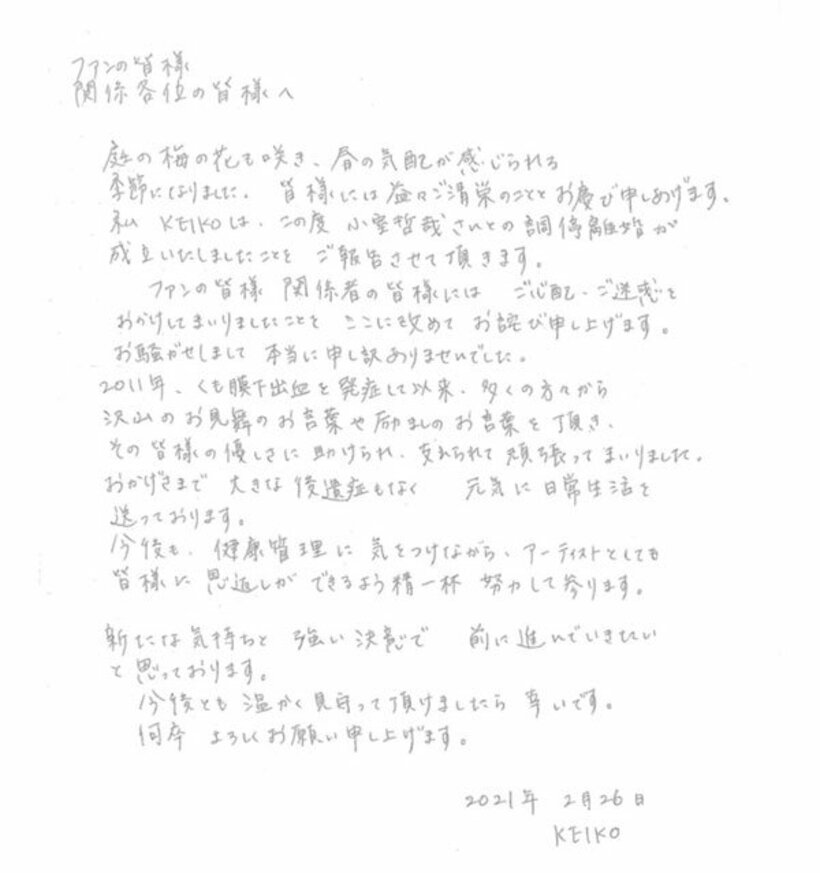 ファンの皆様
関係各位の皆様へ
庭の梅の花も咲き、春の気配が感じられる
季節になりました。 皆様には益々ご清栄のこととお慶び申しあげます。
私 KEIKOは、この度 小室哲哉さんとの調停離婚が
成立いたしましたことを ご報告させて頂きます。
ファンの皆様 関係者の皆様には ご心配・ご迷惑を
おかけしてまいりましたことを ここに改めて お詫び申し上げます。
お騒がせしまして 本当に申し訳ありませんでした。
2011年、くも膜下出血を発症して以来、多くの方々から
沢山のお見舞のお言葉や励ましのお言葉を頂き、
その皆様の優しさに助けられ、支えられて 頑張ってまいりました。
おかげさまで 大きな後遺症もなく 元気に日常生活を
送っております。
今後も、健康管理に気をつけながら、アーティストとしても
皆様に恩返しができるよう精一杯 努力して参ります。
新たな気持ちと 強い決意で 前に進んでいきたい
と思っております。
今後とも温かく見守って頂けましたら 幸いです。
何卒 よろしくお願い申し上げます。
2021年 2月26日
KEIKO